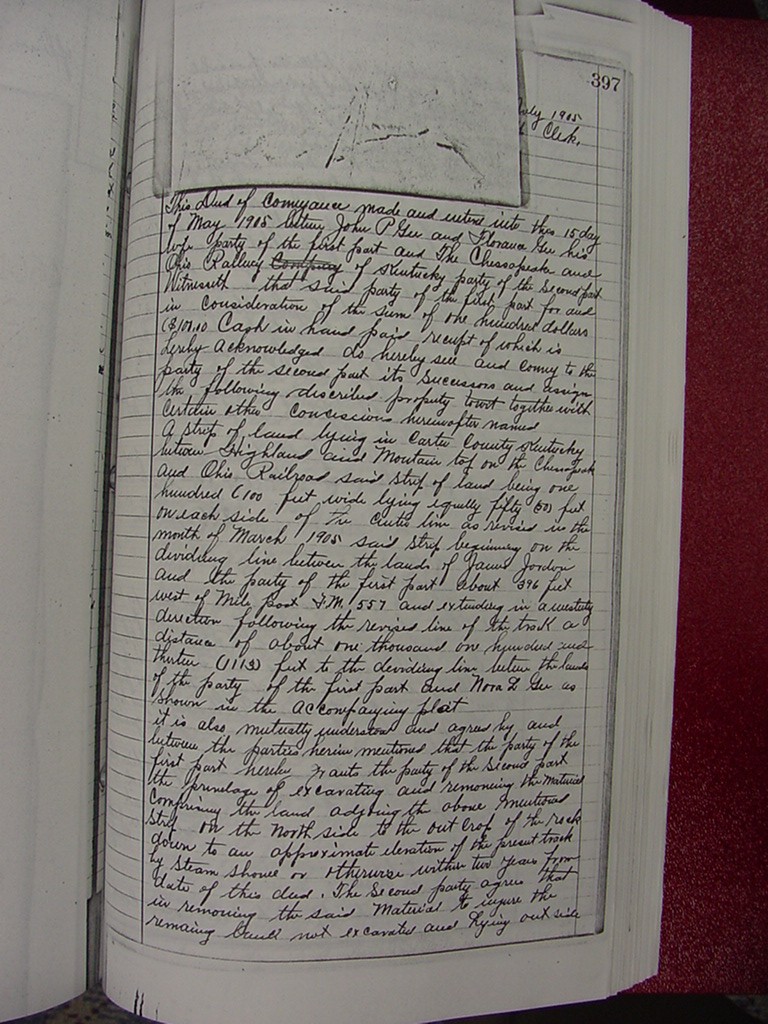 397
July 1905
Clerk.
This Deed of Conveyance made and entered into this 15 day
of May 1905 between John P Gee and Florance Gee his
wife party of the first part and The Chessapeake and
Ohio Railway Company of Kentucky party of the Second part
Witnesseth that said party of the first part for and
in consideration of the sum of one hundred dollars
($100.00 Cash in hand paid receipt of which is
hereby acknowledged do hereby sell and convey to the
party of the second part its Successors and assign
the following discribed property towit together with
Certain other Conscissions hereafter named
A strip of land lying in Carter County Kentucky
between Highland and Mountain top on the Chesapeak
and Ohio Railroad said strip of land being one
hundred (100 feet wide lying equally fifty (50) feet
on each side of the center line as revised in the
month of March 1905 said strip beginning on the
dividing line between the lands of James Jordon
and the party of the first part about 396 feet
west of Mile post F.M. 557 and extending in a westerly
direction following the revised line of the track a
distance of about one thousand one hundred and
thirteen (1113) feet to the deviding line between the lands
of the party of the first part and Nora D Gee as
shown in the accompanying plat
it is also mutually understood and agreed by and
between the parties herein mentioned that the party of the
first part hereby grants the party of the Second part
the privelage of excavating and removing the Material
Comprising the land adjoing the above mentioned
Strip on the North side to the out Crop of the rock
down to an approximate elevation of the present track
by Steam shovel or otherwise within two years from
date of this deed. The Second party agrees that
in removing the said Material to injure the
remaing land not excavated and lying out side